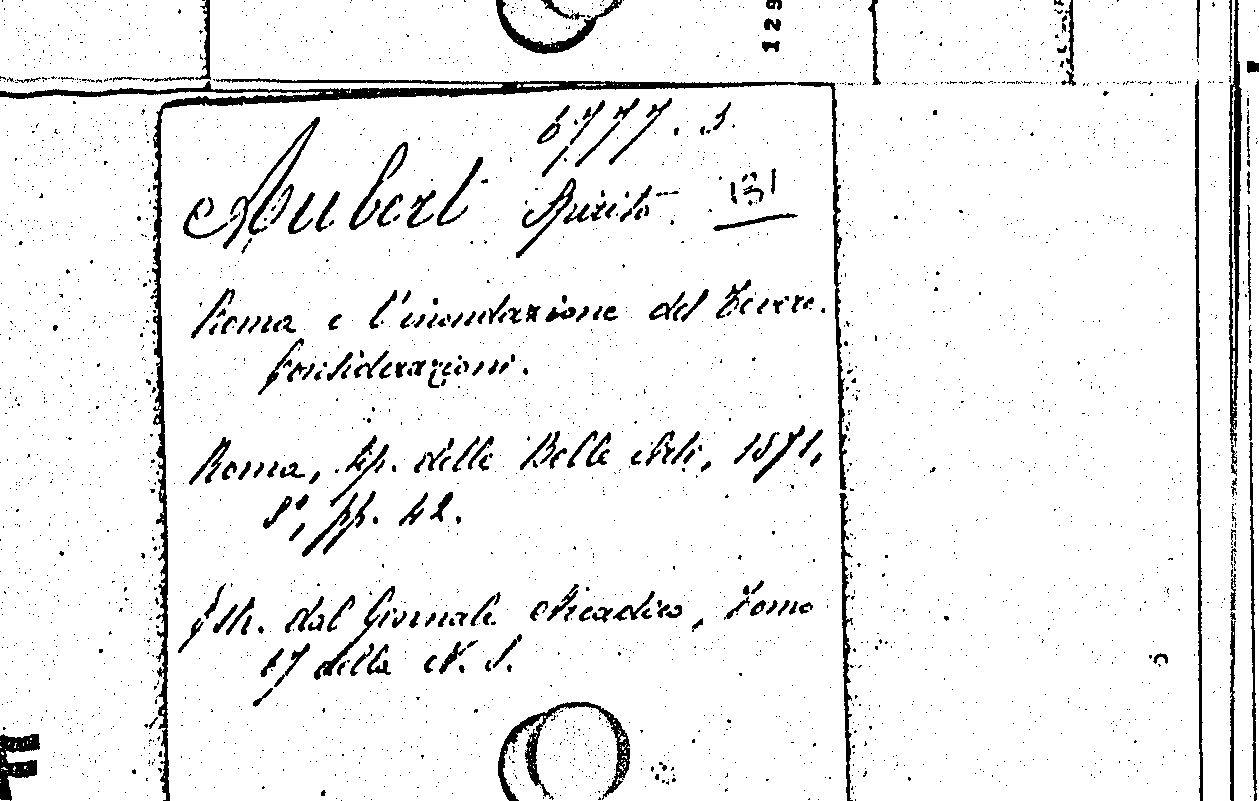 129
6777. 3.
Aubert Spirito. 131
Roma e l'inondazione del Tevere.
Considerazioni.
Roma, tip. delle Belle Arti, 1871,
8°, pp. 42.
Estr. dal Giornale Arcadico, Tomo
67 della N. S.